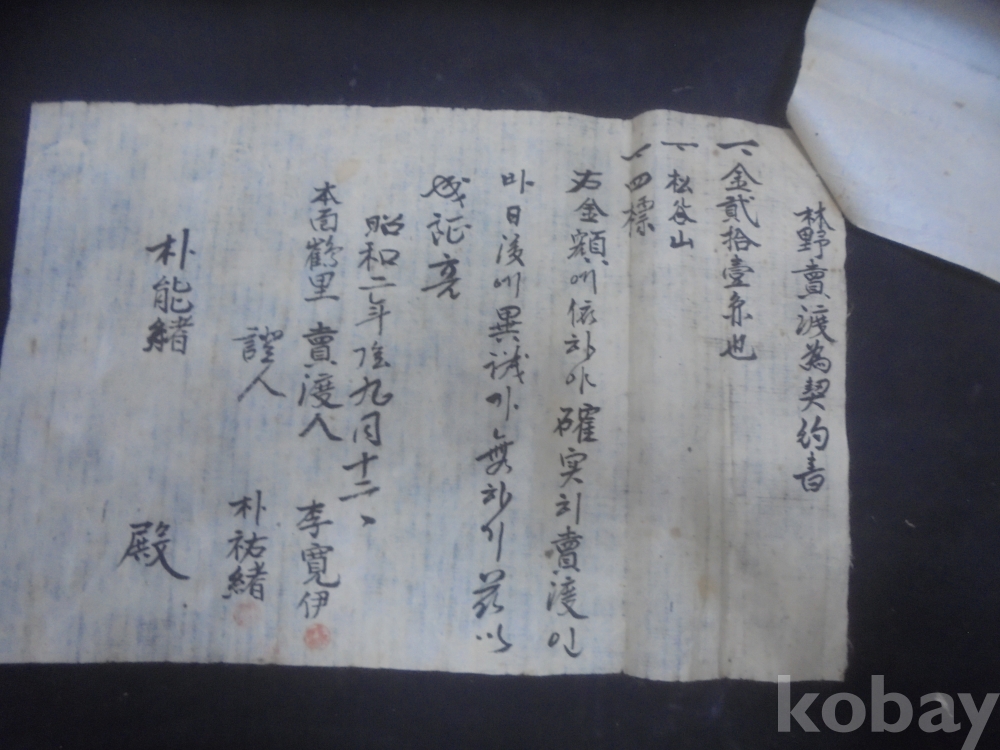 林野賣渡為契約書
一、金貳拾壹조也
一、松谷山
一、四標
右金額에依하야確実히賣渡인
바日後에異議가無하기玆以
成証亮
昭和二年陰九月十二、
本面鶴里 賣渡人 李寬伊
證人 朴祐緖
朴能緖 殿
kobay